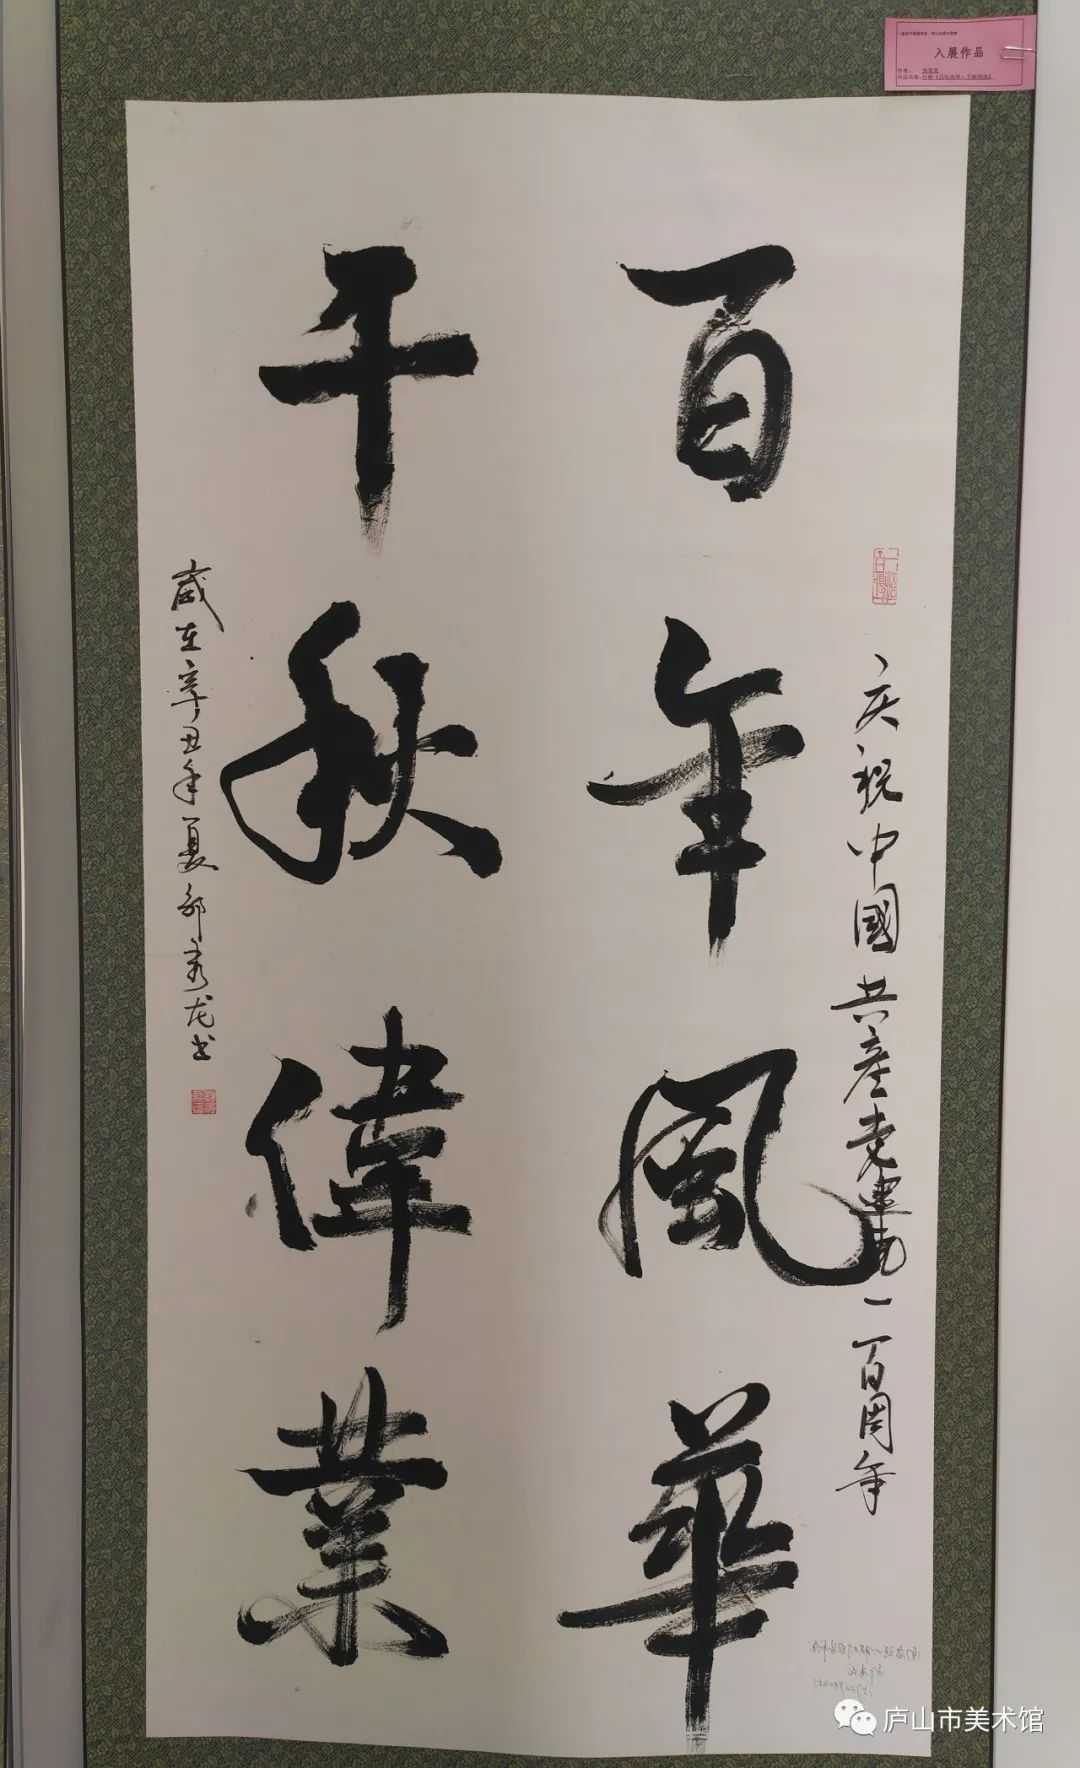 入展作品
庆祝中國共產党建党一百周年
百年風華
千秋偉業
歲在辛丑年夏郭秀龙书
庐山市美术馆